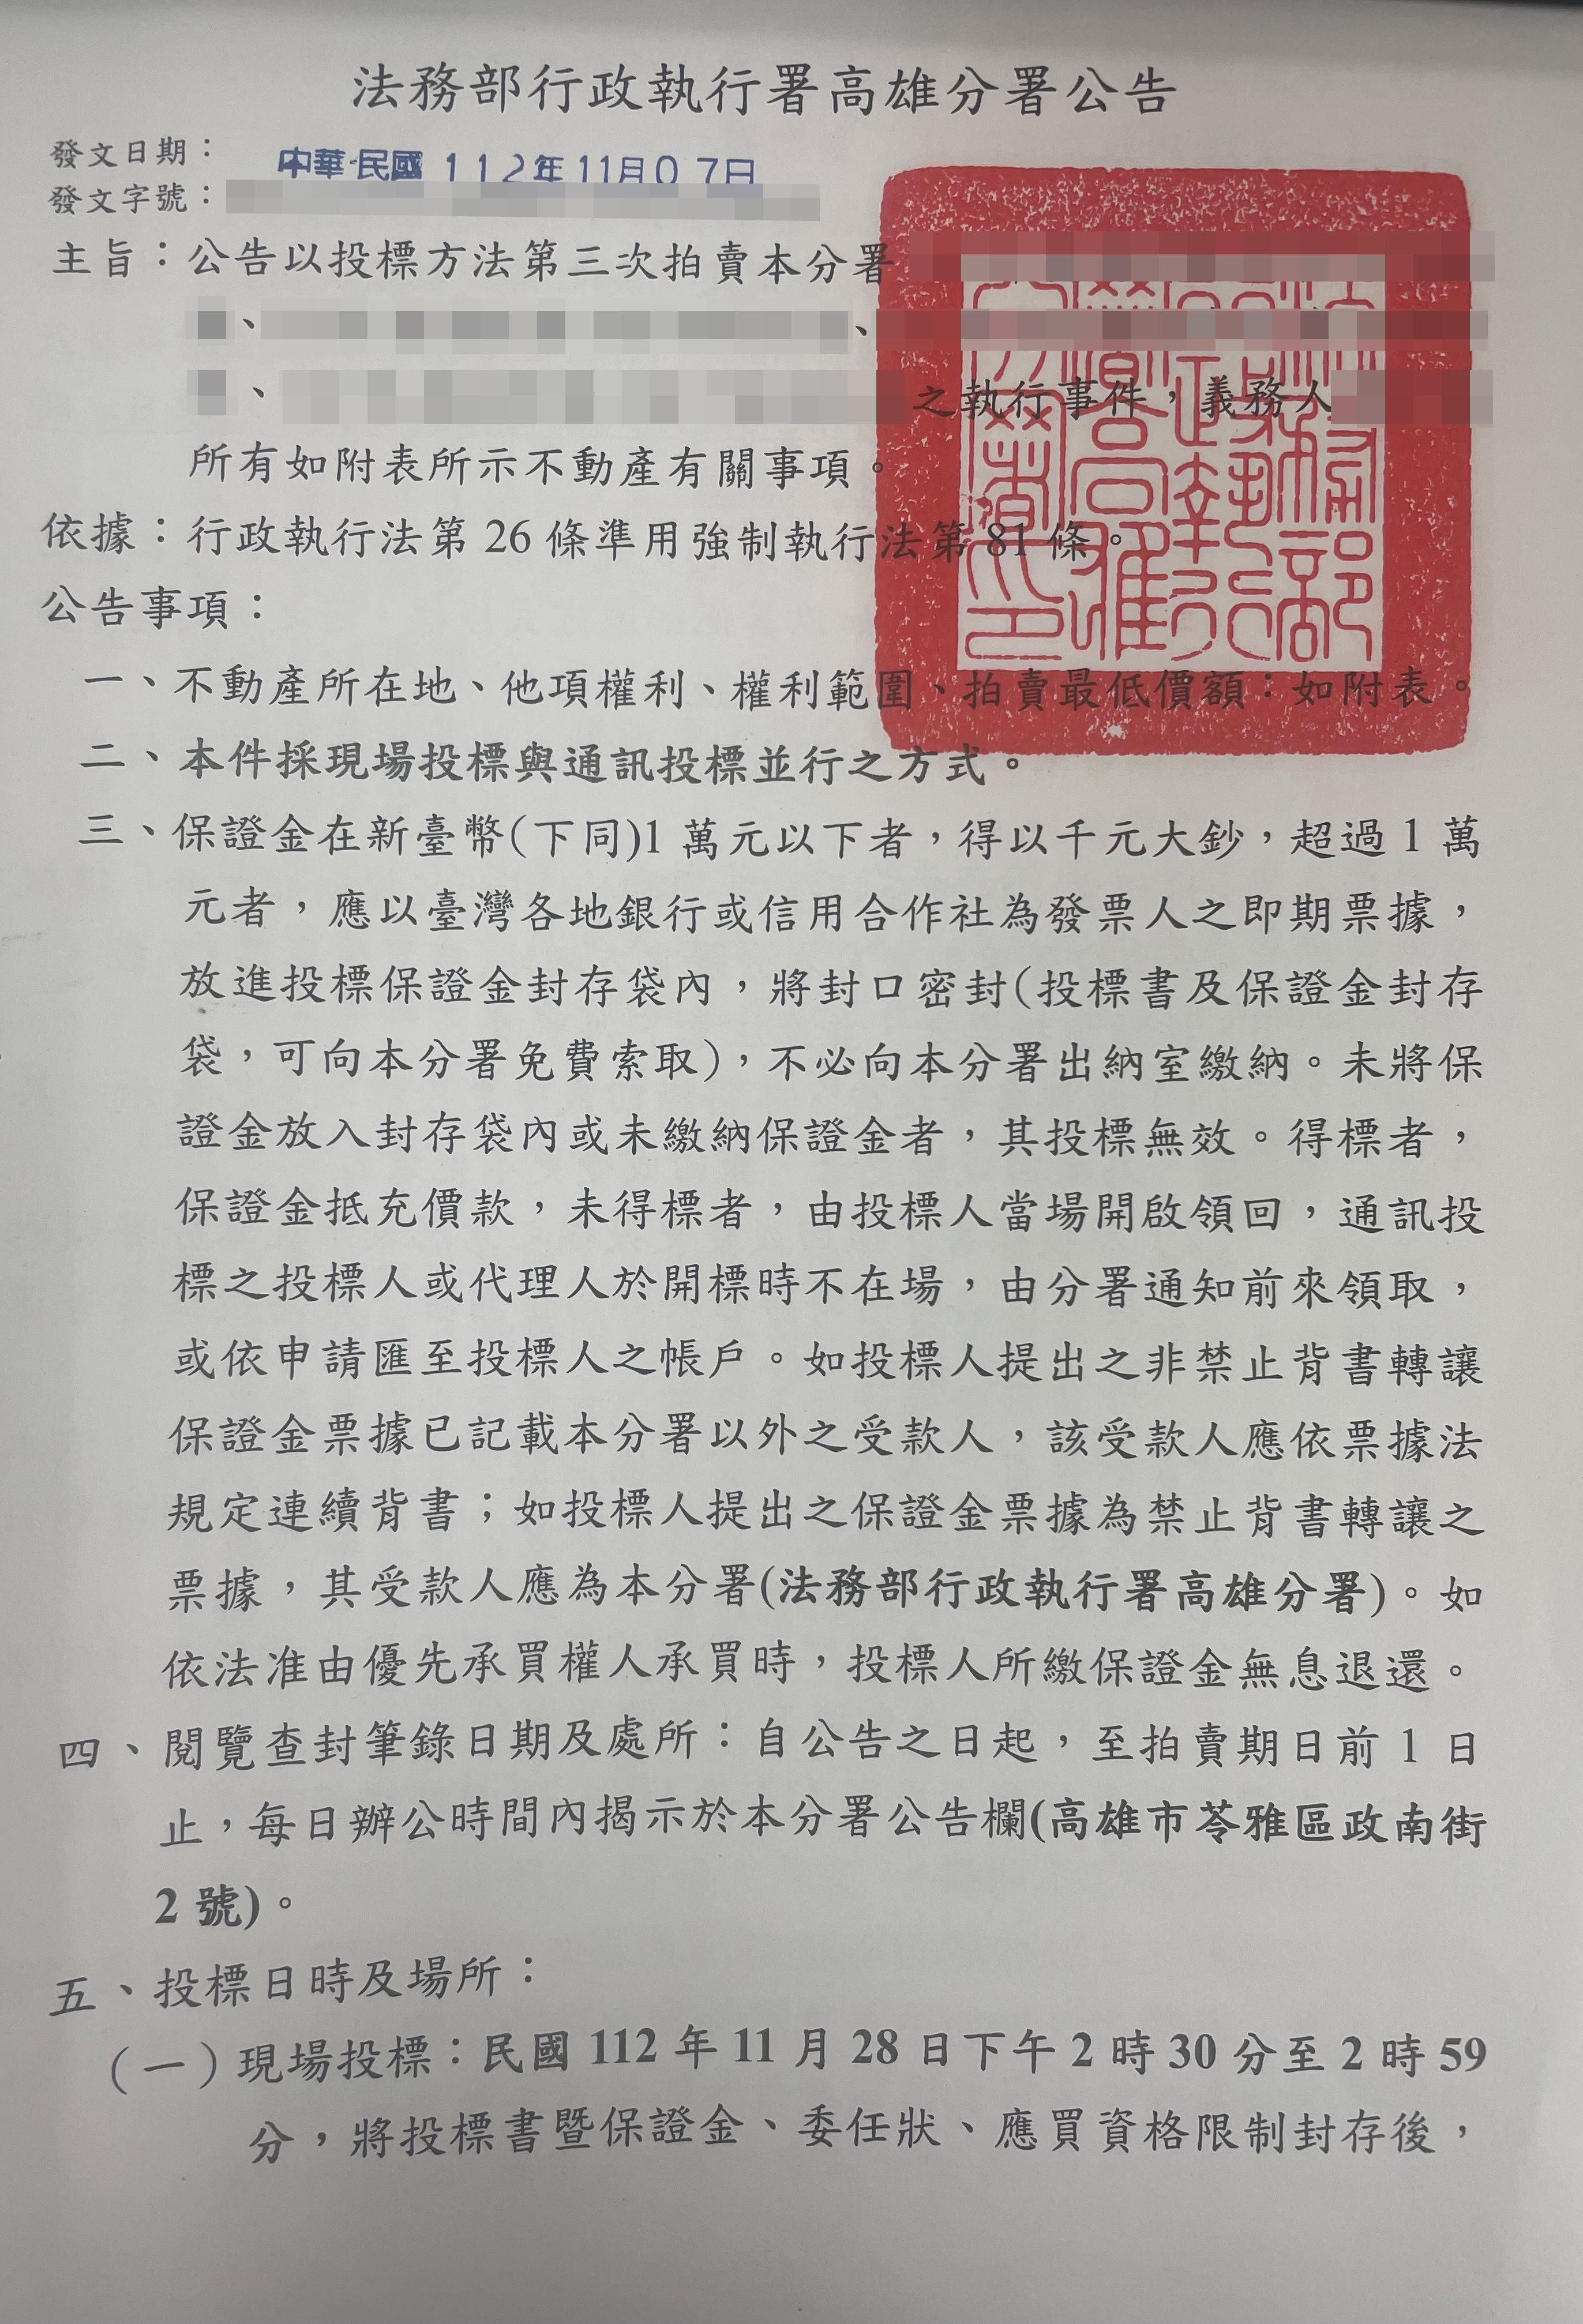 法務部行政執行署高雄分署公告
發文日期：中華民國112年11月07日
發文字號：
主旨：公告以投標方法第三次拍賣本分署
、、
、之執行事件，義務人
所有如附表所示不動產有關事項。
依據：行政執行法第 26 條準用強制執行法第 81 條。
公告事項：
一、不動產所在地、他項權利、權利範圍、拍賣最低價額：如附表。
二、本件採現場投標與通訊投標並行之方式。
三、保證金在新臺幣(下同)1 萬元以下者，得以千元大鈔，超過 1 萬
元者，應以臺灣各地銀行或信用合作社為發票人之即期票據，
放進投標保證金封存袋內，將封口密封(投標書及保證金封存
袋，可向本分署免費索取)，不必向本分署出納室繳納。未將保
證金放入封存袋內或未繳納保證金者，其投標無效。得標者，
保證金抵充價款，未得標者，由投標人當場開啟領回，通訊投
標之投標人或代理人於開標時不在場，由分署通知前來領取，
或依申請匯至投標人之帳戶。如投標人提出之非禁止背書轉讓
保證金票據已記載本分署以外之受款人，該受款人應依票據法
規定連續背書；如投標人提出之保證金票據為禁止背書轉讓之
票據，其受款人應為本分署(法務部行政執行署高雄分署)。如
依法准由優先承買權人承買時，投標人所繳保證金無息退還。
四、閱覽查封筆錄日期及處所：自公告之日起，至拍賣期日前 1 日
止，每日辦公時間內揭示於本分署公告欄(高雄市苓雅區政南街
2 號)。
五、投標日時及場所：
(一)現場投標：民國 112 年 11 月 28 日下午 2 時 30 分至 2 時 59
分，將投標書暨保證金、委任狀、應買資格限制封存後，